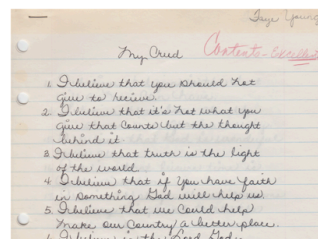 Faye Young
My Creed Content - Excellent
1. I believe that you should not
give to recieve.
2. I believe that it's not what you
give that counts but the thought
behind it
3. I believe that truth is the light
of the world.
4. I believe that if you have faith
in something God will help us.
5. I believe that we could help
make our country a better place.